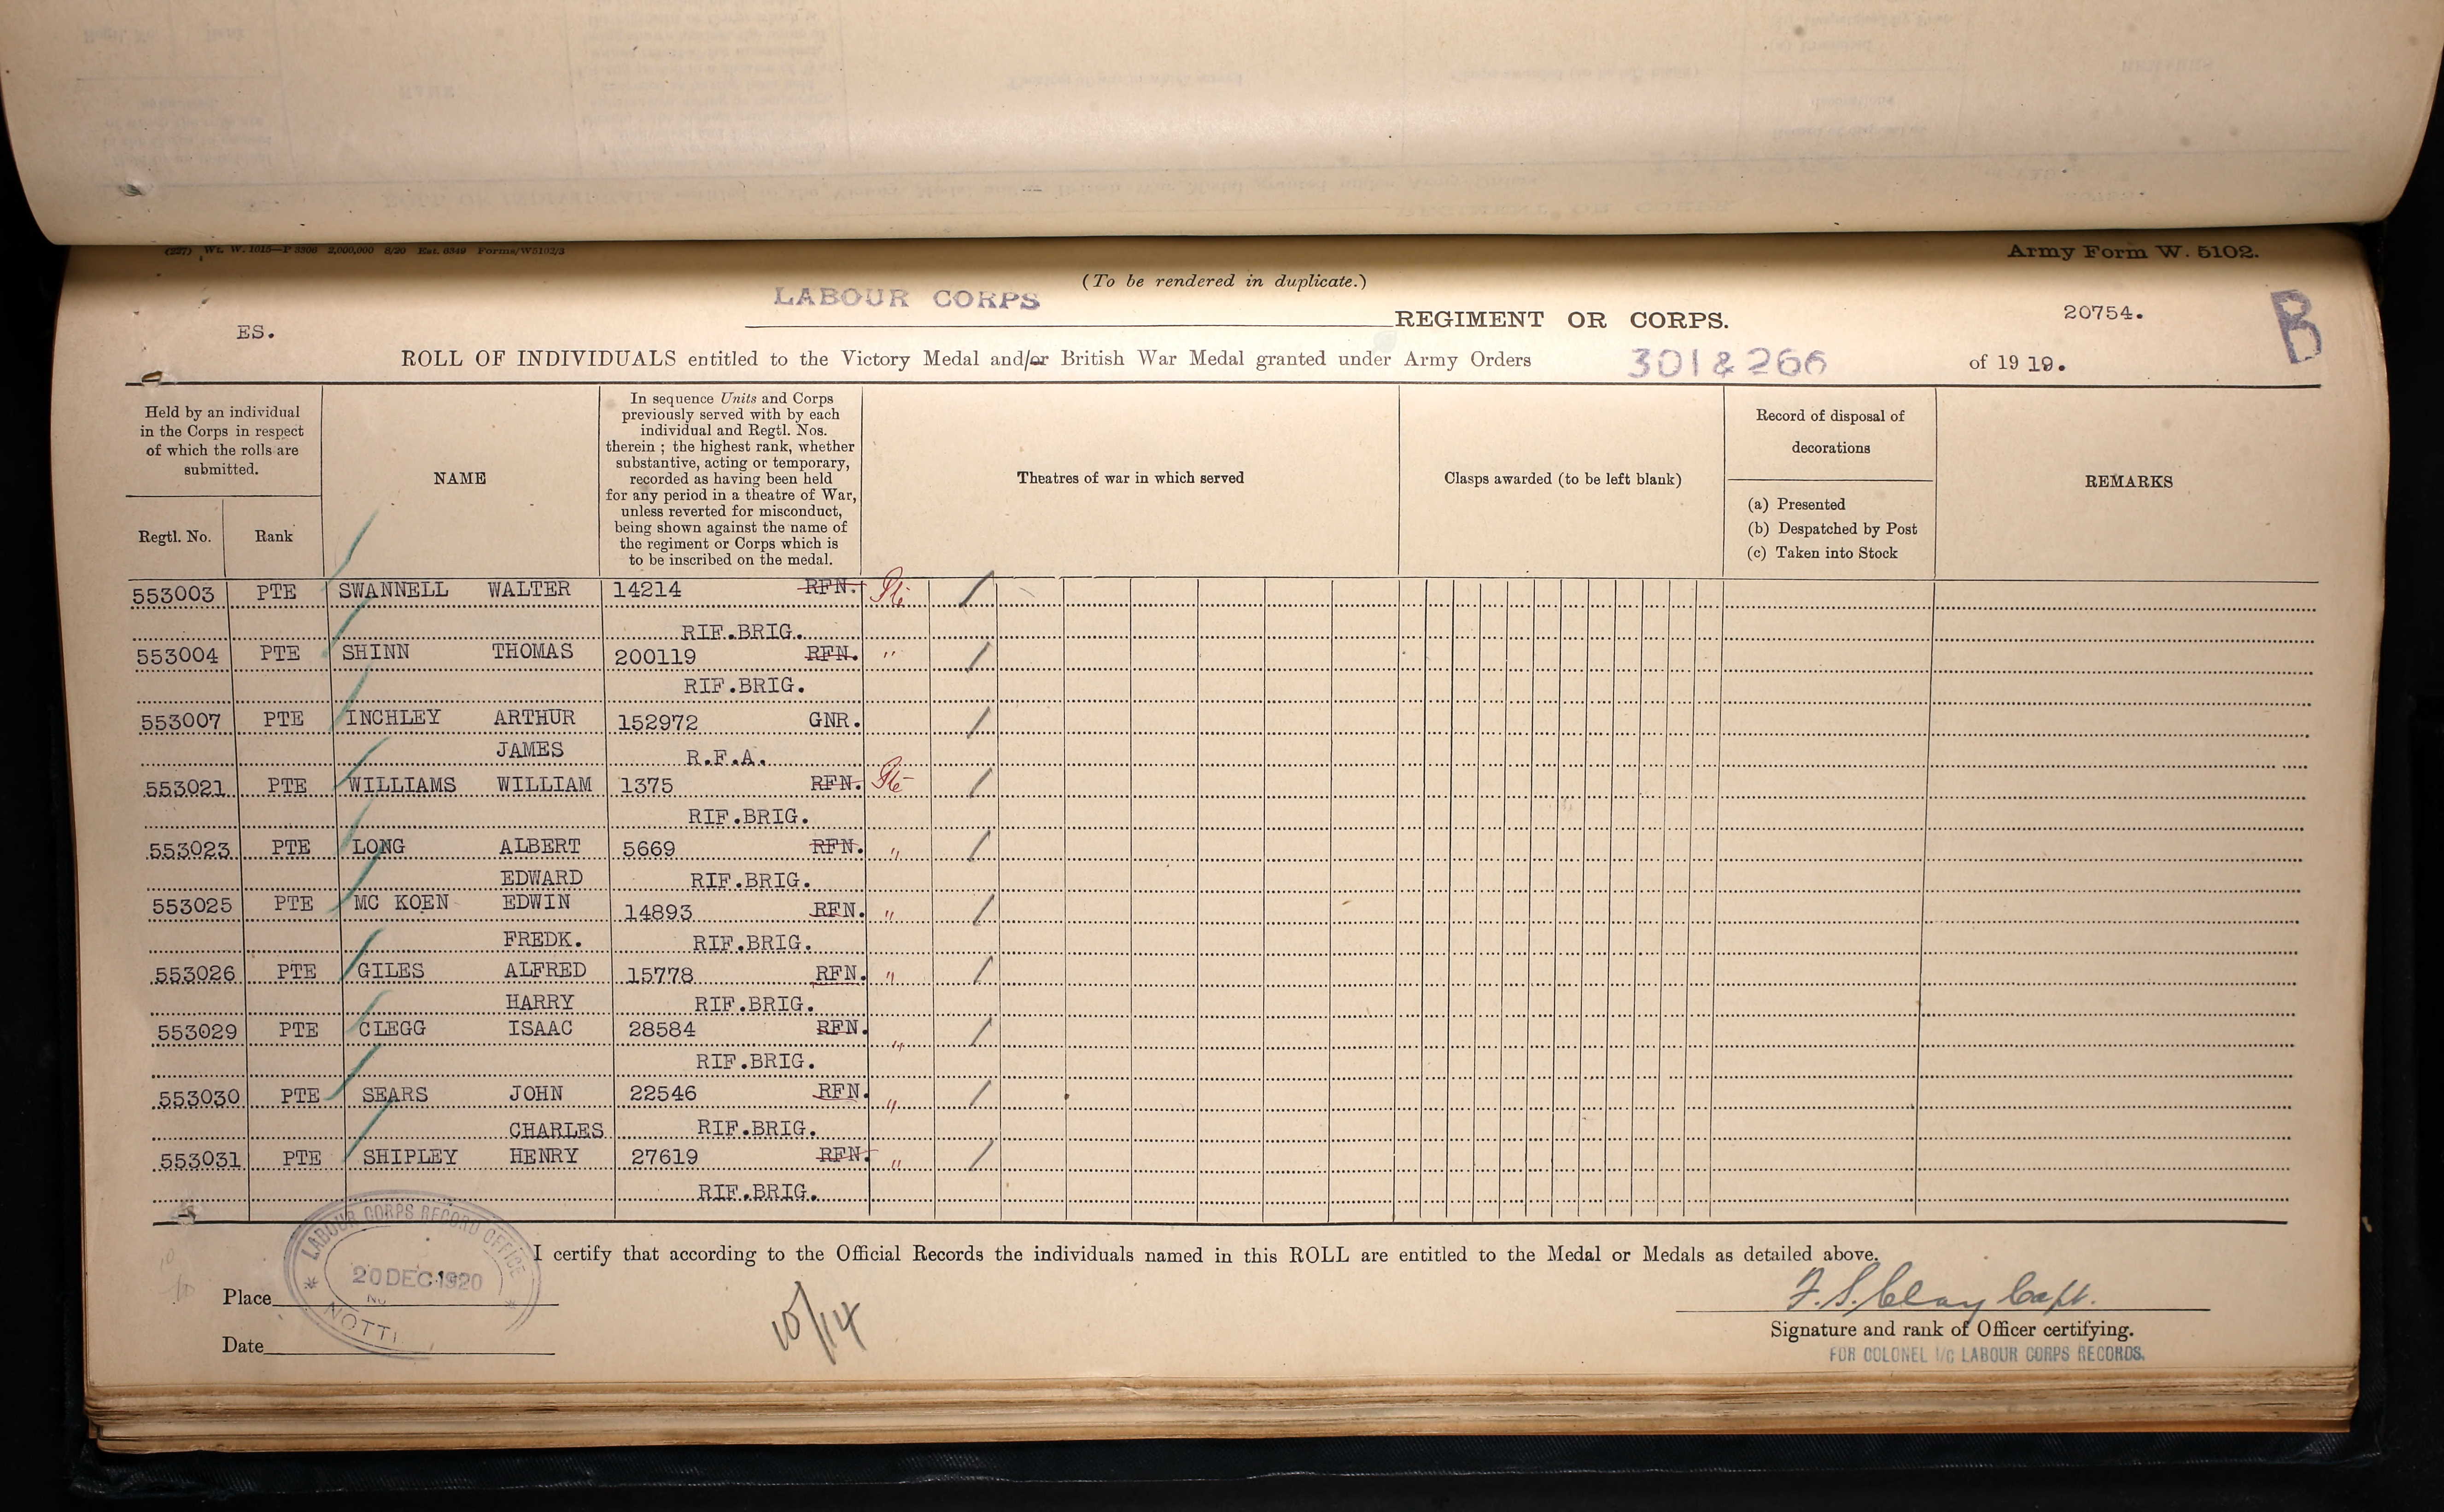 (227) Wt. W. 1015—P 3306 2,000,000 8/20 Est. 6349 Forms/W5102/3
Army Form W. 5102.
(To be rendered in duplicate.)
LABOUR CORPS
REGIMENT OR CORPS.
20754.
B
ES.
ROLL OF INDIVIDUALS entitled to the Victory Medal and/or British War Medal granted under Army Orders 301 & 266 of 1919.
Held by an individual
in the Corps in respect
of which the rolls are
submitted.
Regtl. No.
Rank
NAME
In sequence Units and Corps
previously served with by each
individual and Regtl. Nos.
therein ; the highest rank, whether
substantive, acting or temporary,
recorded as having been held
for any period in a theatre of War,
unless reverted for misconduct,
being shown against the name of
the regiment or Corps which is
to be inscribed on the medal.
Theatres of war in which served
Clasps awarded (to be left blank)
Record of disposal of
decorations
(a) Presented
(b) Despatched by Post
(c) Taken into Stock
REMARKS
553003 PTE SWANNELL WALTER 14214 RFN. Pte /
RIF.BRIG.
553004 PTE SHINN THOMAS 200119 RFN. " /
RIF.BRIG.
553007 PTE INCHLEY ARTHUR 152972 GNR. /
JAMES R.F.A.
553021 PTE WILLIAMS WILLIAM 1375 RFN. Pte /
RIF.BRIG.
553023 PTE LONG ALBERT 5669 RFN. " /
EDWARD RIF.BRIG.
553025 PTE MC KOEN EDWIN 14893 RFN. " /
FREDK. RIF.BRIG.
553026 PTE GILES ALFRED 15778 RFN. " /
HARRY RIF.BRIG.
553029 PTE CLEGG ISAAC 28584 RFN. " /
RIF.BRIG.
553030 PTE SEARS JOHN 22546 RFN. " /
CHARLES RIF.BRIG.
553031 PTE SHIPLEY HENRY 27619 RFN. " /
RIF.BRIG.
LABOUR CORPS RECORD OFFICE
20 DEC 1920
NOTTI
I certify that according to the Official Records the individuals named in this ROLL are entitled to the Medal or Medals as detailed above.
Place
Date
10/14
F. S. Clay Capt.
Signature and rank of Officer certifying.
FOR COLONEL I/C LABOUR CORPS RECORDS.